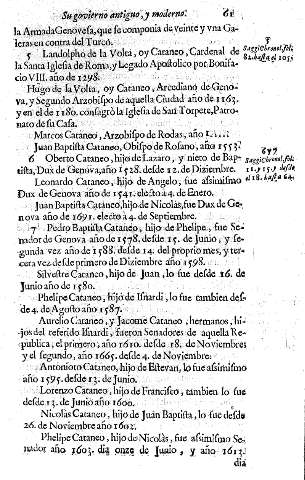 Su govierno antiguo, y moderno. 61
la Armada Genovesa, que se componia de veinte y vna Ga-
leras en contra del Turco.
5 Landolpho de la Volta, oy Cataneo, Cardenal de
la Santa Iglesia de Roma, y Legado Apostolico por Bonifa-
cio VIII. año de 1298.
Hugo de la Volta, oy Cataneo, Arcediano de Geno-
va, y Segundo Arzobispo de aquella Ciudad año de 1163.
y en el de 1180. consagrò la Iglesia de San Torpete, Patro-
nato de su Casa.
Marcos Cataneo, Arzobispo de Rodas, año 1
Juan Baptista Cataneo, Obispo de Rosano, año 1553.
6 Oberto Cataneo, hijo de Lazaro, y nieto de Bap-
tista, Dux de Genova, año 1528. desde 12. de Diziembre.
Leonardo Cataneo, hijo de Angelo, fue asimismo
Dux de Genova año de 1541. electo à 4. de Enero.
Juan Baptista Cataneo, hijo de Nicolàs, fue Dux de Ge-
nova año de 1691. electo à 4. de Septiembre.
7 Pedro Baptista Cataneo, hijo de Phelipe, fue Se-
nador de Genova año de 1578. desde 15. de Junio, y se-
gunda vez año de 1588. desde 14. del proprio mes, y ter-
cera vez desde primero de Diziembre año 1598.
Silvestre Cataneo, hijo de Juan, lo fue desde 16. de
Junio año de 1580.
Phelipe Cataneo, hijo de Isnardi, lo fue tambien des-
de 4. de Agosto año de 1587.
Aurelio Cataneo, y Jacome Cataneo, hermanos, hi-
jos del referido Isnardi, fueron Senadores de aquella Re-
publica, el primero, año 1610. desde 18. de Noviembre
y el segundo, año 1665. desde 4. de Noviembre.
Antonioto Cataneo, hijo de Estevan, lo fue asimismo
año 1595. desde 13. de Junio.
Lorenzo Cataneo, hijo de Francisco, tambien lo fue
desde 13. de Junio año 1600.
Nicolàs Cataneo, hijo de Juan Baptista, lo fue desde
26. de Noviembre año 1602.
Phelipe Cataneo, hijo de Nicolàs, fue asimismo Se-
nador año 1603. dia onze de Junio, y año 1613.
dia
Saggi Chronol. fol.
82. hasta el 105.
6 y 7
Saggi Chronol. fol.